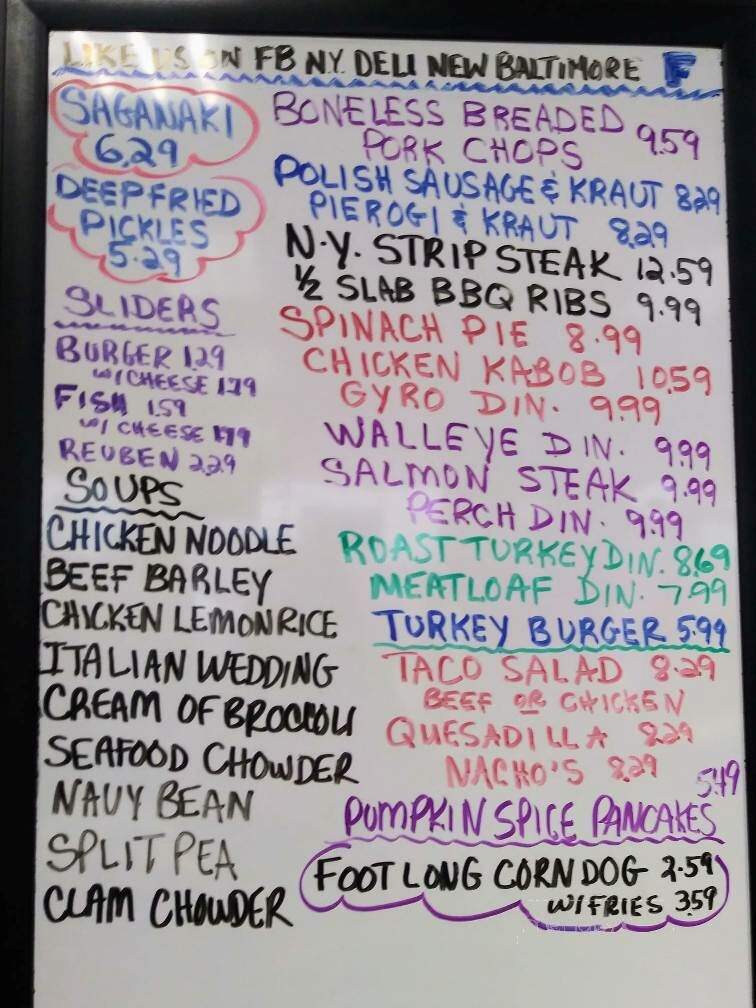 LIKE US ON FB N.Y. DELI NEW BALTIMORE F
SAGANAKI
6.29
DEEP FRIED
PICKLES
5.29
SLIDERS
BURGER 1.29
W/CHEESE 1.79
FISH 1.59
W/ CHEESE 1.99
REUBEN 2.29
SOUPS
CHICKEN NOODLE
BEEF BARLEY
CHICKEN LEMON RICE
ITALIAN WEDDING
CREAM OF BROCCOLI
SEAFOOD CHOWDER
NAVY BEAN
SPLIT PEA
CLAM CHOWDER
BONELESS BREADED
PORK CHOPS 9.59
POLISH SAUSAGE & KRAUT 8.29
PIEROGI & KRAUT 8.29
N.Y. STRIP STEAK 12.59
1/2 SLAB BBQ RIBS 9.99
SPINACH PIE 8.99
CHICKEN KABOB 10.59
GYRO DIN. 9.99
WALLEYE DIN. 9.99
SALMON STEAK 9.99
PERCH DIN. 9.99
ROAST TURKEY DIN. 8.69
MEATLOAF DIN. 7.99
TURKEY BURGER 5.99
TACO SALAD 8.29
BEEF OR CHICKEN
QUESADILLA 8.29
NACHO'S 8.29
PUMPKIN SPICE PANCAKES 5.49
FOOT LONG CORN DOG 2.59
W/FRIES 3.59